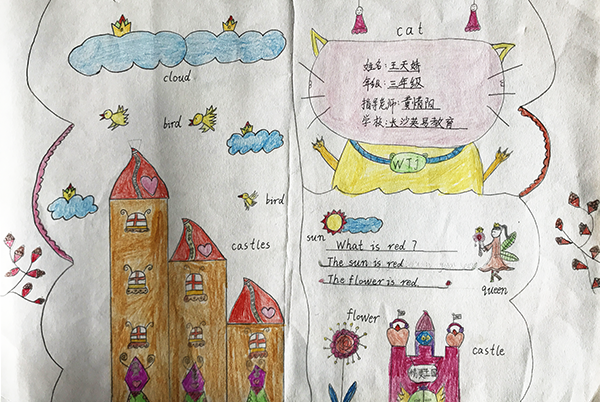 cat
cloud
姓名:王天婧
年级:三年级
指导老师:黄
学校:长沙英易教育
bird
WTJ
bird
castles
sun
What is red?
The sun is red
The flower is red
queen
flower
castle
王国